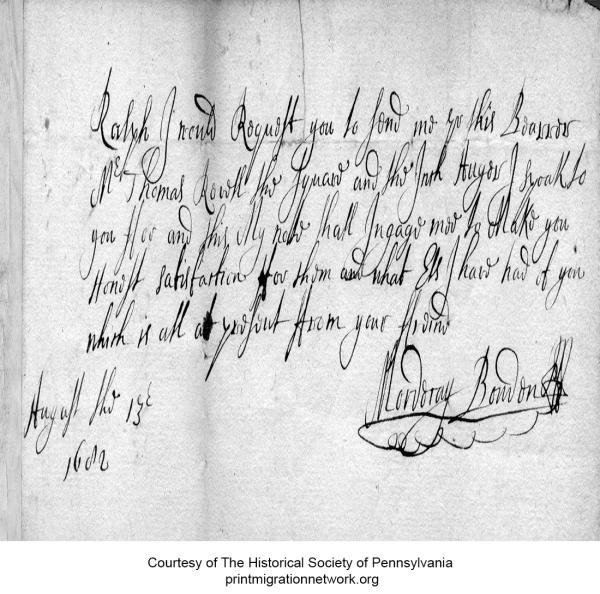 Ralph I would Request you to send me by this Bearrer
Mr Thomas Rowll the Square and the Inch Auger I spoak to
you For and this My note shall Ingage mee to Make you
Honest Satisfaction For them and what Els I have had of you
which is all at present From your Freind
Mordecay Bowdon
August the 13t
1682
Courtesy of The Historical Society of Pennsylvania
printmigrationnetwork.org